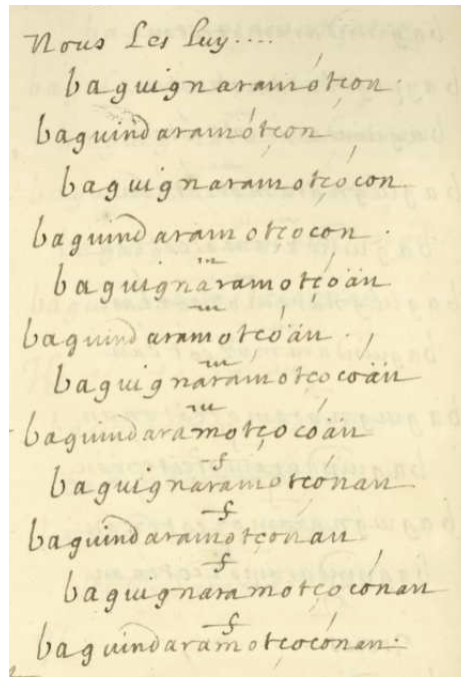 Nous Les Luy....
baguignaramótçon.
baguindaramótçon
baguignaramotçócon
baguindaramotçocon.
baguignaramotçóän
baguindaramotçóän.
baguignaramotçocoän
baguindaramotçocóän
baguignaramotçónan
baguindaramotçónan
baguignaramotçoconan
baguindaramotçocónan.